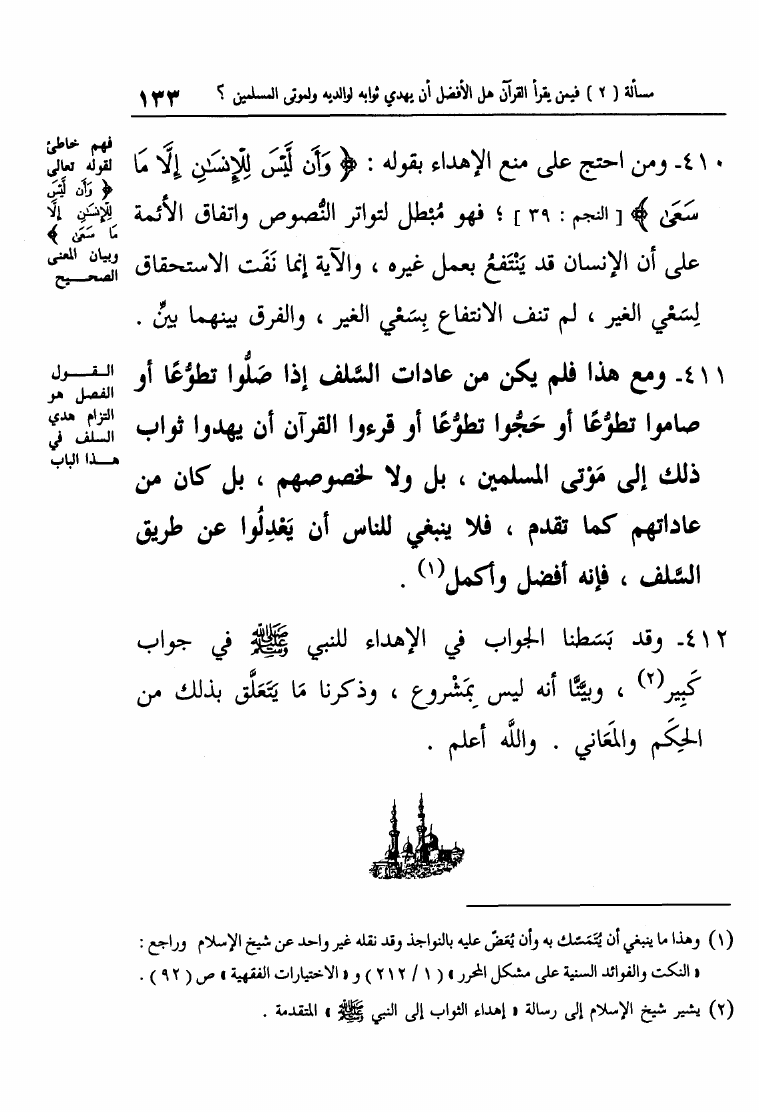 مسألة ( ٢ ) فيمن يقرأ القرآن هل الأفضل أن يهدي ثوابه لوالديه ولموتى المسلمين ؟ ١٣٣
٤١٠ـ ومن احتج على منع الإهداء بقوله : ﴿ وَأَن لَّيْسَ لِلْإِنسَـٰنِ إِلَّا مَا
سَعَىٰ ﴾ [ النجم : ٣٩ ] ؛ فهو مُبْطل لتواتر النُّصوص واتفاق الأئمة
على أن الإنسان قد يَنْتَفعُ بعمل غيره ، والآية إنما نَفَت الاستحقاق
لِسَعْي الغير ، لم تنف الانتفاع بِسَعْي الغير ، والفرق بينهما بيِّن .
فهم خاطئ
لقوله تعالى
﴿ وَأَن لَّيْسَ
لِلْإِنسَـٰنِ إِلَّا
مَا سَعَىٰ ﴾
وبيان المعنى
الصحـــيح
٤١١ـ ومع هذا فلم يكن من عادات السَّلف إذا صَلُّوا تطوُّعًا أو
صاموا تطوُّعًا أو حَجُّوا تطوُّعًا أو قرءوا القرآن أن يهدوا ثواب
ذلك إلى مَوْتى المسلمين ، بل ولا لخصوصهم ، بل كان من
عاداتهم كما تقدم ، فلا ينبغي للناس أن يَعْدِلُوا عن طريق
السَّلف ، فإنه أفضل وأكمل(١) .
القـــول
الفصل هو
التزام هدي
السلف في
هـــذا الباب
٤١٢ـ وقد بَسَطنا الجواب في الإهداء للنبي ﷺ في جواب
كَبِير(٢) ، وبيَّنَّا أنه ليس بِمَشْروع ، وذكرنا مَا يَتَعَلَّق بذلك من
الحِكَم والمَعَاني . واللَّه أعلم .
(١) وهذا ما ينبغي أن يُتَمَسّك به وأن يُعَضّ عليه بالنواجذ وقد نقله غير واحد عن شيخ الإسلام وراجع :
« النكت والفوائد السنية على مشكل المحرر » ( ١ / ٢١٢ ) و « الاختيارات الفقهية » ص ( ٩٢ ) .
(٢) يشير شيخ الإسلام إلى رسالة « إهداء الثواب إلى النبي ﷺ » المتقدمة .